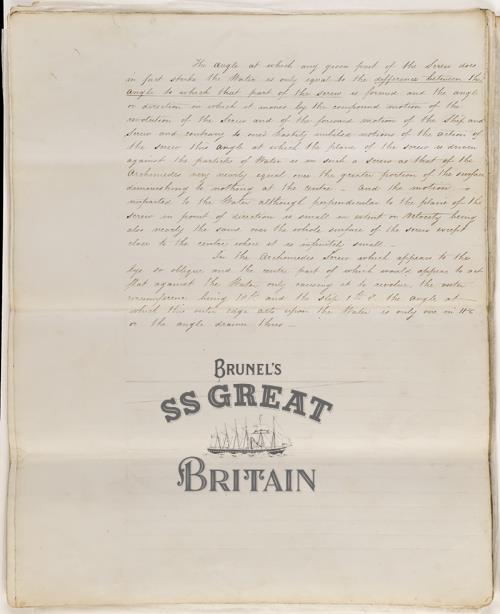 The angle at which any given part of the Screw does
in fact strike the Water is only equal to the difference between the
angle to which that part of the screw is formed and the angle
or direction in which it moves by the compound motion of the
revolution of the Screw and of the forward motion of the Ship and
Screw and contrary to ones hastily imbibed notions of the action of
the screw this angle at which the plane of the screw is driven
against the particles of Water is in such a screw as that of the
Archimedes very nearly equal over the greater portion of the surface
diminishing to nothing at the centre – and the motion
imparted to the Water although perpendicular to the plane of the
screw in point of direction is small in extent or velocity being
also nearly the same over the whole surface of the screw except
close to the centre where it is infinitely small –
In the Archimedes Screw which appears to the
eye so oblique and the centre part of which would appear to act
flat against the Water only causing it to revolve, the outer
circumference being and the slip the angle at
which this outer edge acts upon the Water is only one in
or the angle drawn thus –
BRUNEL'S
SS GREAT
BRITAIN